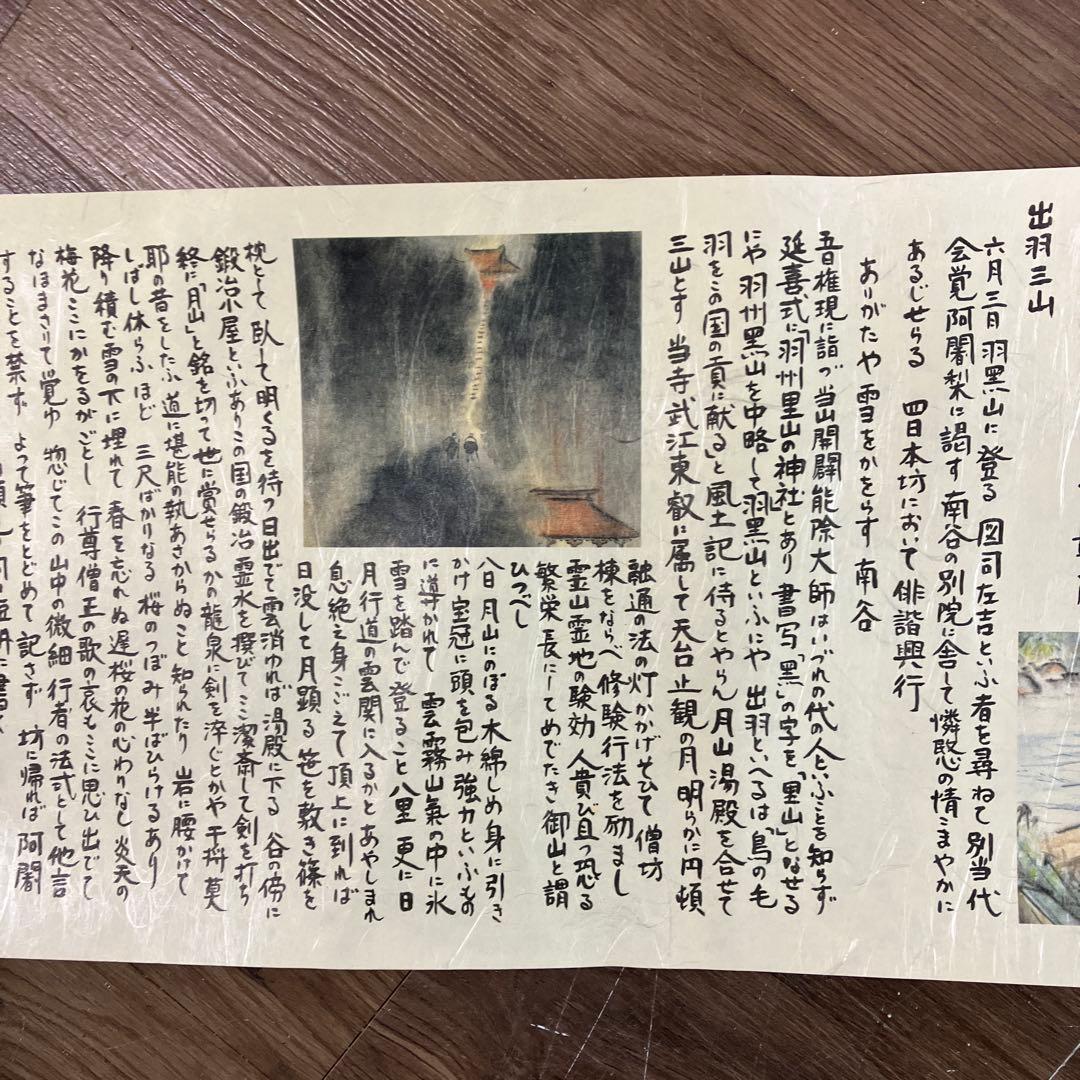 出羽三山
六月三日 羽黒山に登る 図司左吉といふ者を尋ねて 別当代
会覚阿闍梨に謁す 南谷の別院に舎して 憐愍の情こまやかに
あるじせらる 四日本坊において 俳諧興行
ありがたや 雪をかをらす 南谷
五日権現に詣づ 当山開闢能除大師はいづれの代の人といふことを知らず
延喜式に「羽州里山の神社」とあり 書写「黒」の字を「里山」となせる
にや 羽州黒山を中略して羽黒山といふにや 出羽といへるは「鳥の毛
羽をこの国の貢に献る」と風土記に侍るとやらん 月山湯殿を合せて
三山とす 当寺武江東叡に属して 天台止観の月明らかに円頓
融通の法の灯かかげそひて 僧坊
棟をならべ 修験行法を励まし
霊山霊地の験効 人貴び且つ恐る
繁栄長にしてめでたき御山と謂
ひつべし
八日 月山にのぼる 木綿しめ身に引き
かけ 宝冠に頭を包み 強力といふもの
に導かれて 雲霧山氣の中に氷
雪を踏んで登ること八里 更に日
月行道の雲関に入るかとあやしまれ
息絶え身こごえて 頂上に到れば
日没して月顕る 笹を敷き 篠を
枕として 臥して明くるを待つ 日出でて雲消ゆれば 湯殿に下る 谷の傍に
鍛冶小屋といふあり この国の鍛冶 霊水を撰びて ここに潔斎して剣を打ち
終に「月山」と銘を切って世に賞せらる かの龍泉に剣を淬ぐとかや 干将莫
耶の昔をしたふ 道に堪能の執あさからぬこと知られたり 岩に腰かけて
しばし休らふほど 三尺ばかりなる桜のつぼみ半ばひらけるあり
降り積む雪の下に埋れて 春を忘れぬ遅桜の花の心わりなし 炎天の
梅花ここにかをるがごとし 行尊僧正の歌の哀もここに思ひ出でて
なほまさりて覚ゆ 惣じてこの山中の微細 行者の法式として他言
することを禁ず よって筆をとどめて記さず 坊に帰れば 阿闍